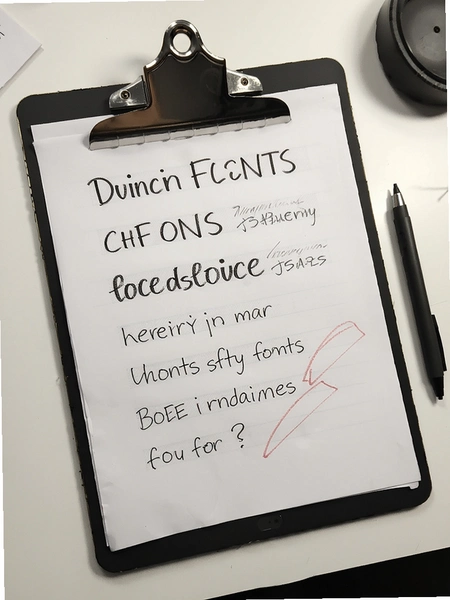 Duincin FLCNTS
CHF ONS
focedsloice
hereirý jn mar
Uhonts sfty fomts
BOEE irndaimes
fou for ?